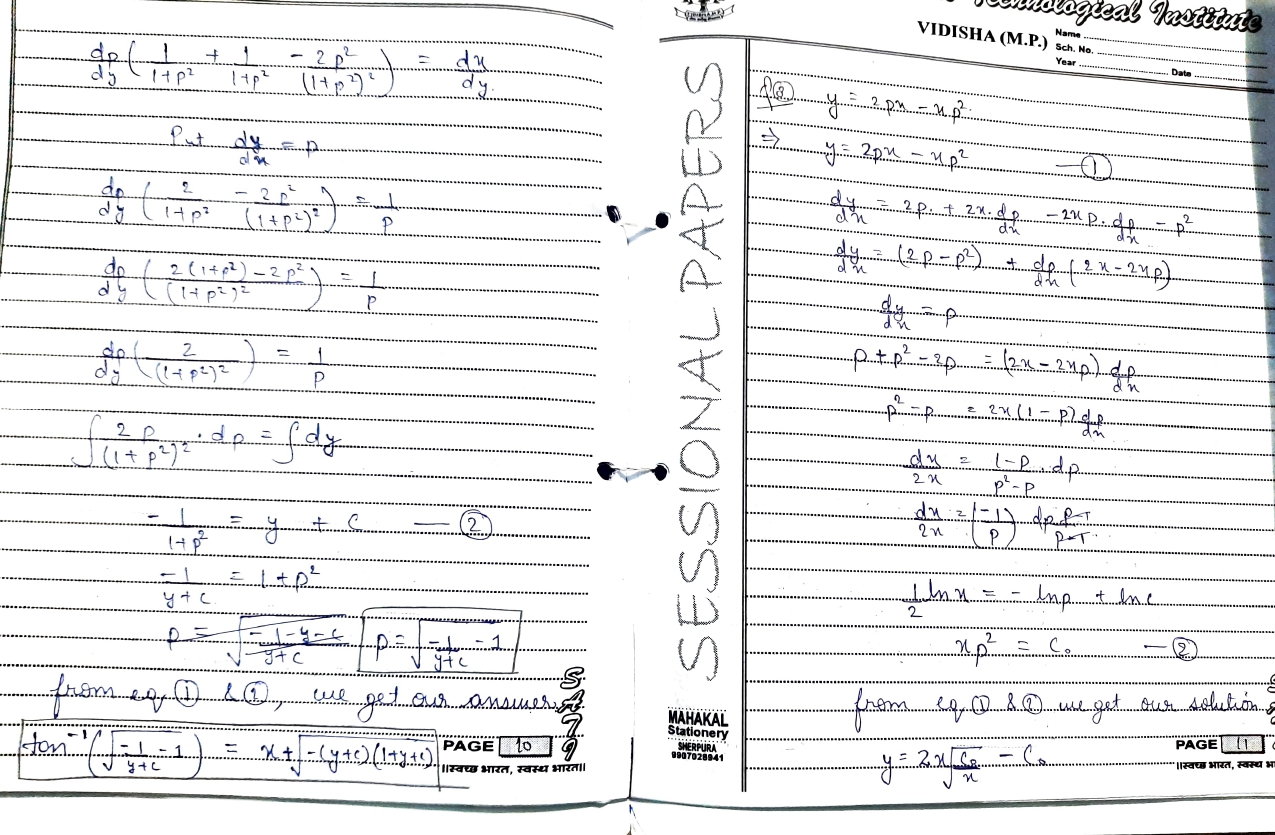 dp/dy ( 1/(1+p²) + 1/(1+p²) - 2p²/(1+p²)² ) = dx/dy.
Put dy/dx = p
dp/dy ( 2/(1+p²) - 2p²/(1+p²)² ) = 1/p
dp/dy ( (2(1+p²) - 2p²)/(1+p²)² ) = 1/p
dp/dy ( 2/(1+p²)² ) = 1/p
∫ 2p/(1+p²)² · dp = ∫ dy
-1/(1+p²) = y + c — ②
-1/(y+c) = 1+p²
p = √(-1-y-c)/(y+c) p = √(-1/(y+c) - 1)
from eq, ① & ②, we get our answer.
tan⁻¹(√(-1/(y+c) - 1)) = x + √(-(y+c)(1+y+c))
PAGE 10
॥स्वच्छ भारत, स्वस्थ भारत॥
SATI
SESSIONAL PAPERS
MAHAKAL
Stationery
SHERPURA
9907028941
Technological Institute
VIDISHA (M.P.)
Name
Sch. No.
Year
Date
y = 2px - xp²
⇒ y = 2px - xp² — ①
dy/dx = 2p. + 2x.dp/dx - 2xp.dp/dx - p²
dy/dx = (2p - p²) + dp/dx (2x - 2xp)
dy/dx = p
p + p² - 2p = (2x - 2xp) dp/dx
p² - p = 2x(1 - p) dp/dx
dx/2x = (1-p)/(p²-p) . dp
dx/2x = (-1/p) dp p-1/p-1
1/2 ln x = - ln p + ln c
xp² = C₀ — ②
from eq, ① & ② we get our solution
y = 2x√(C₀/x) - C₀
PAGE 11
॥स्वच्छ भारत, स्वस्थ भ